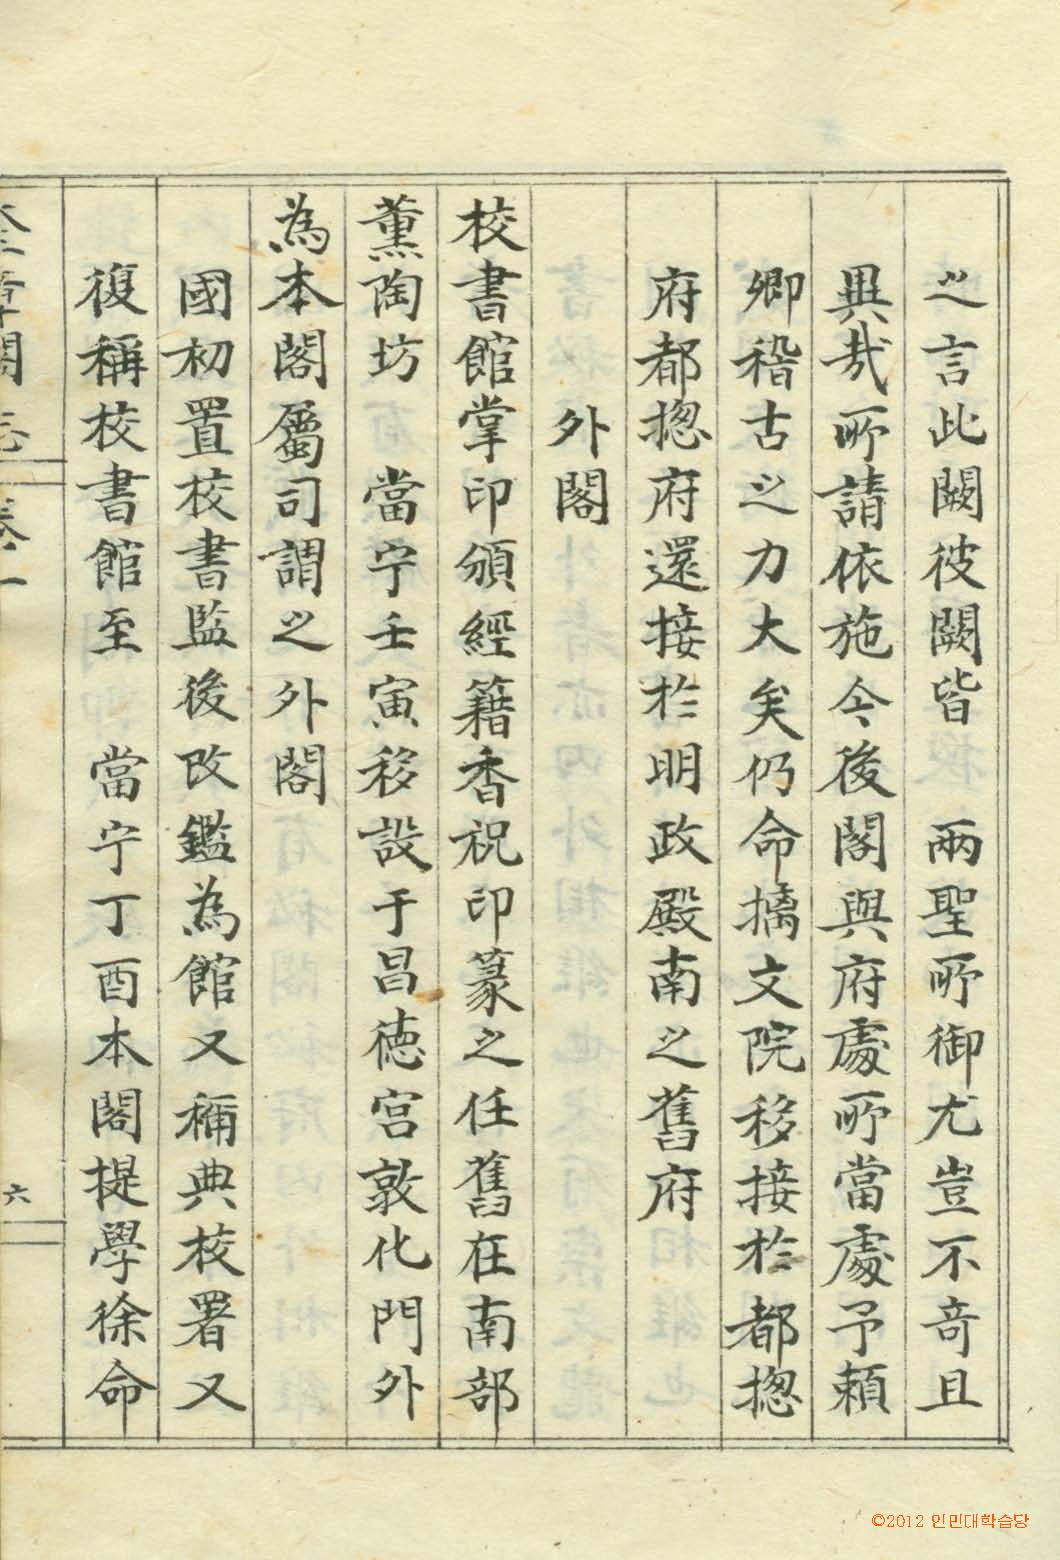 之言此闕彼闕皆 兩聖所御尤豈不奇且
異哉所請依施今後閣與府處所當處予賴
卿稽古之力大矣仍命摛文院移接於都摠
府都摠府還接於明政殿南之舊府
外閣
校書館掌印頒經籍香祝印篆之任舊在南部
薰陶坊 當宁壬寅移設于昌德宮敦化門外
為本閣屬司謂之外閣
國初置校書監後改鑑為館又稱典校署又
復稱校書館至 當宁丁酉本閣提學徐命
奎章閣志 卷一
六
©2012 인민대학습당